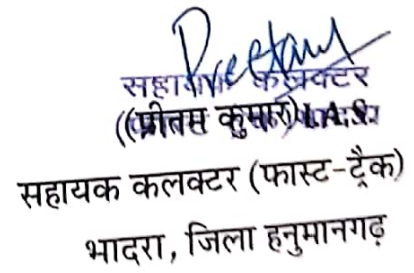 Preetam
सहायक कलक्टर
(प्रीतम कुमार) I.A.S.
सहायक कलक्टर (फास्ट-ट्रैक)
भादरा, जिला हनुमानगढ़